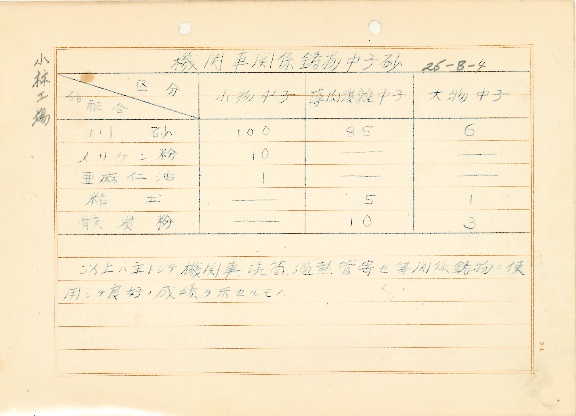 機関車関係鋳物中子砂 26-8-4
小林工場
区分
砂配合
小物中子 薄肉複雑中子 大物中子
川砂 100 85 6
メリケン粉 10 — —
亜麻仁油 1 — —
粘土 — 5 1
骸炭粉 — 10 3
以上ハ主トシテ機関車汽筒、過熱管寄セ等関係鋳物ニ使
用シテ良好ノ成績ヲ示セルモノ